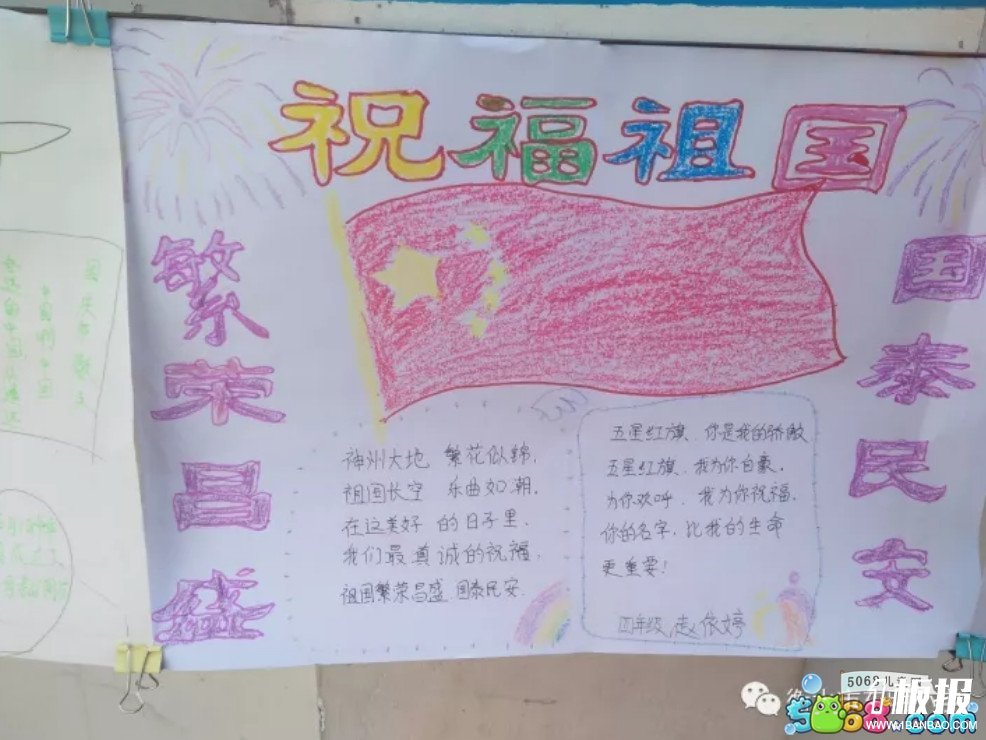 祝福祖国
繁荣昌盛
国泰民安
神州大地 繁花似锦,
祖国长空 乐曲如潮,
在这美好 的日子里、
我们最真诚的祝福,
祖国繁荣昌盛.国泰民安.
五星红旗、你是我的骄傲
五星红旗、我为你自豪,
为你欢呼、我为你祝福,
你的名字,比我的生命
更重要!
四年级 依婷
5068儿童网
小板报
5068.com
WWW.1BANBAO.COM